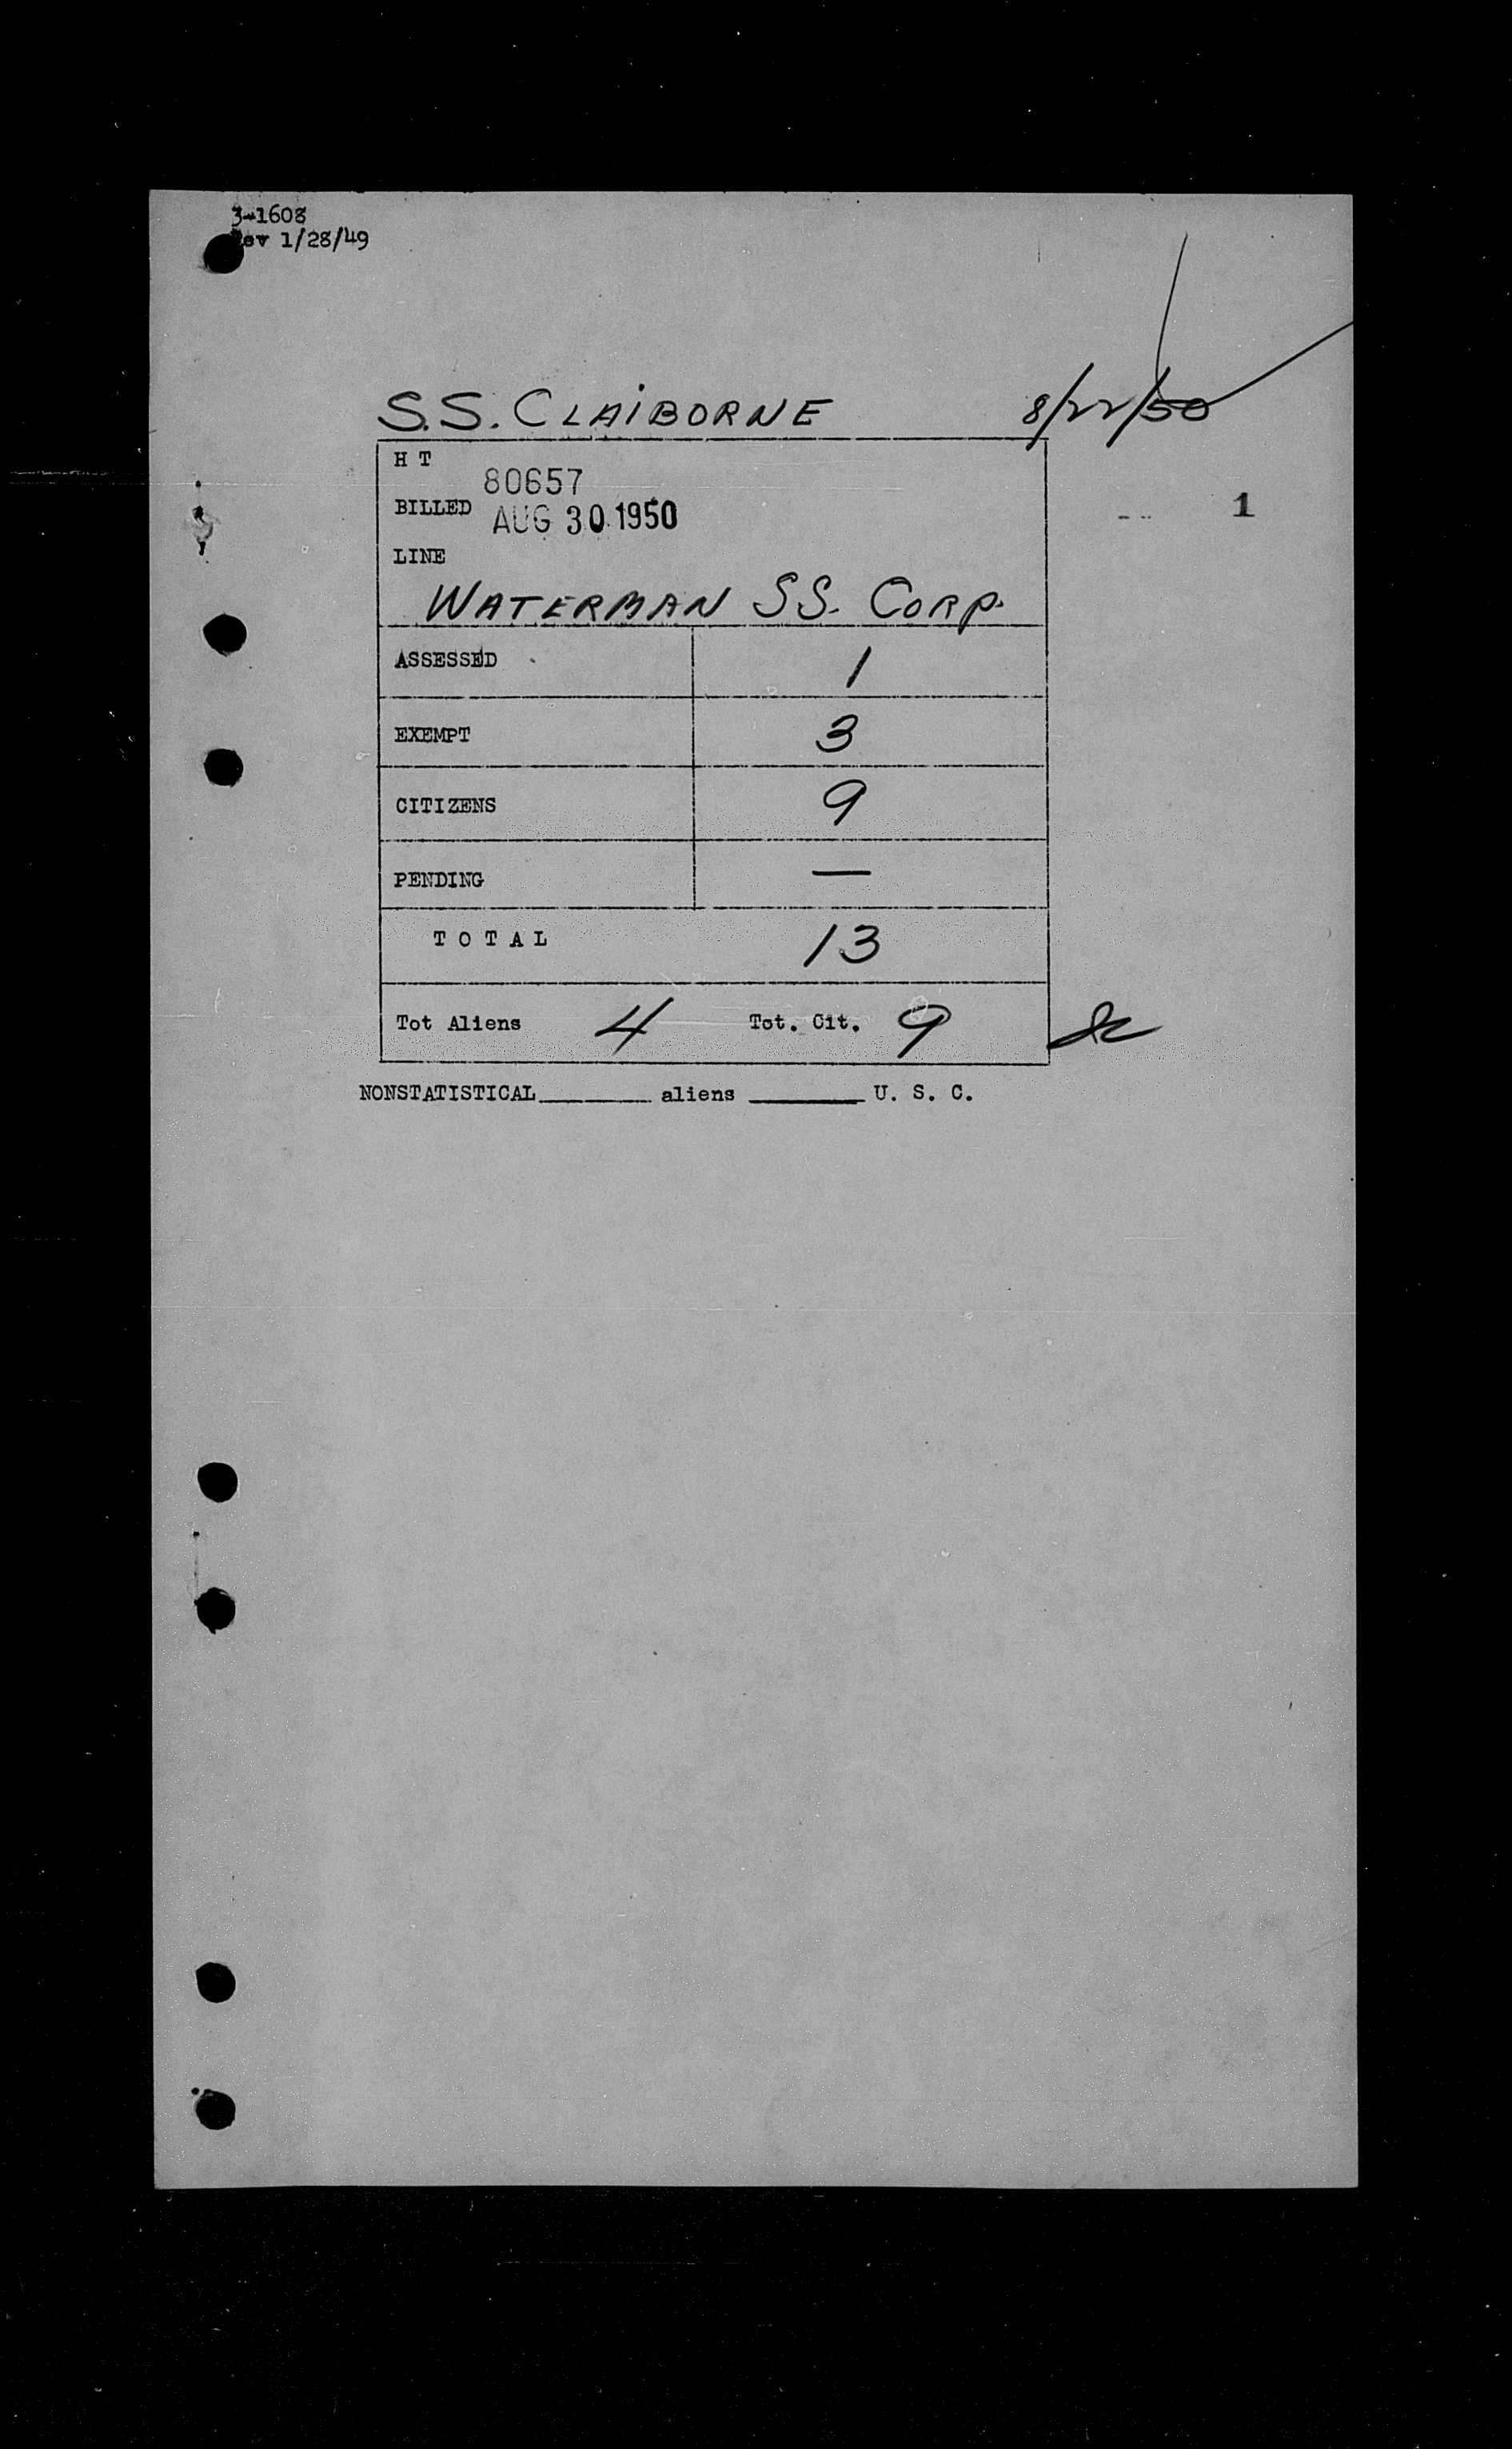 3-1608
Rev 1/28/49
S.S. CLAIBORNE 8/22/50
H T
80657
BILLED AUG 30 1950
1
LINE
WATERMAN SS. CORP.
ASSESSED 1
EXEMPT 3
CITIZENS 9
PENDING —
TOTAL 13
Tot Aliens 4 Tot. Cit. 9
NONSTATISTICAL________ aliens ________ U. S. C.